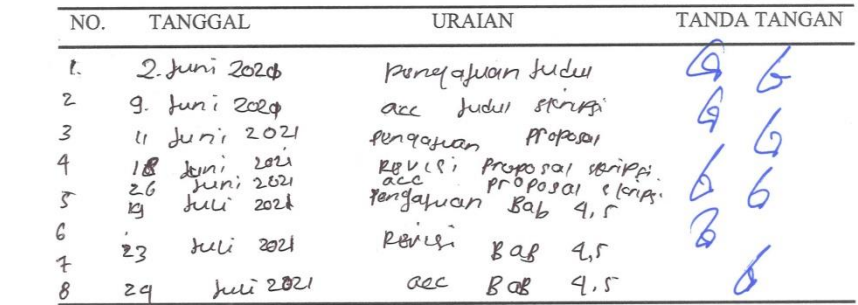 NO. TANGGAL URAIAN TANDA TANGAN
1. 2. Juni 2021 Pengajuan Judul
2 9. Juni 2021 acc Judul skripsi
3 11 Juni 2021 Pengajuan Proposal
4 18 Juni 2021 Revisi Proposal skripsi.
5 26 Juni 2021 acc Proposal skripsi.
6 19 Juli 2021 Pengajuan Bab 4,5
7 23 Juli 2021 Revisi Bab 4,5
8 29 Juli 2021 acc Bab 4.5